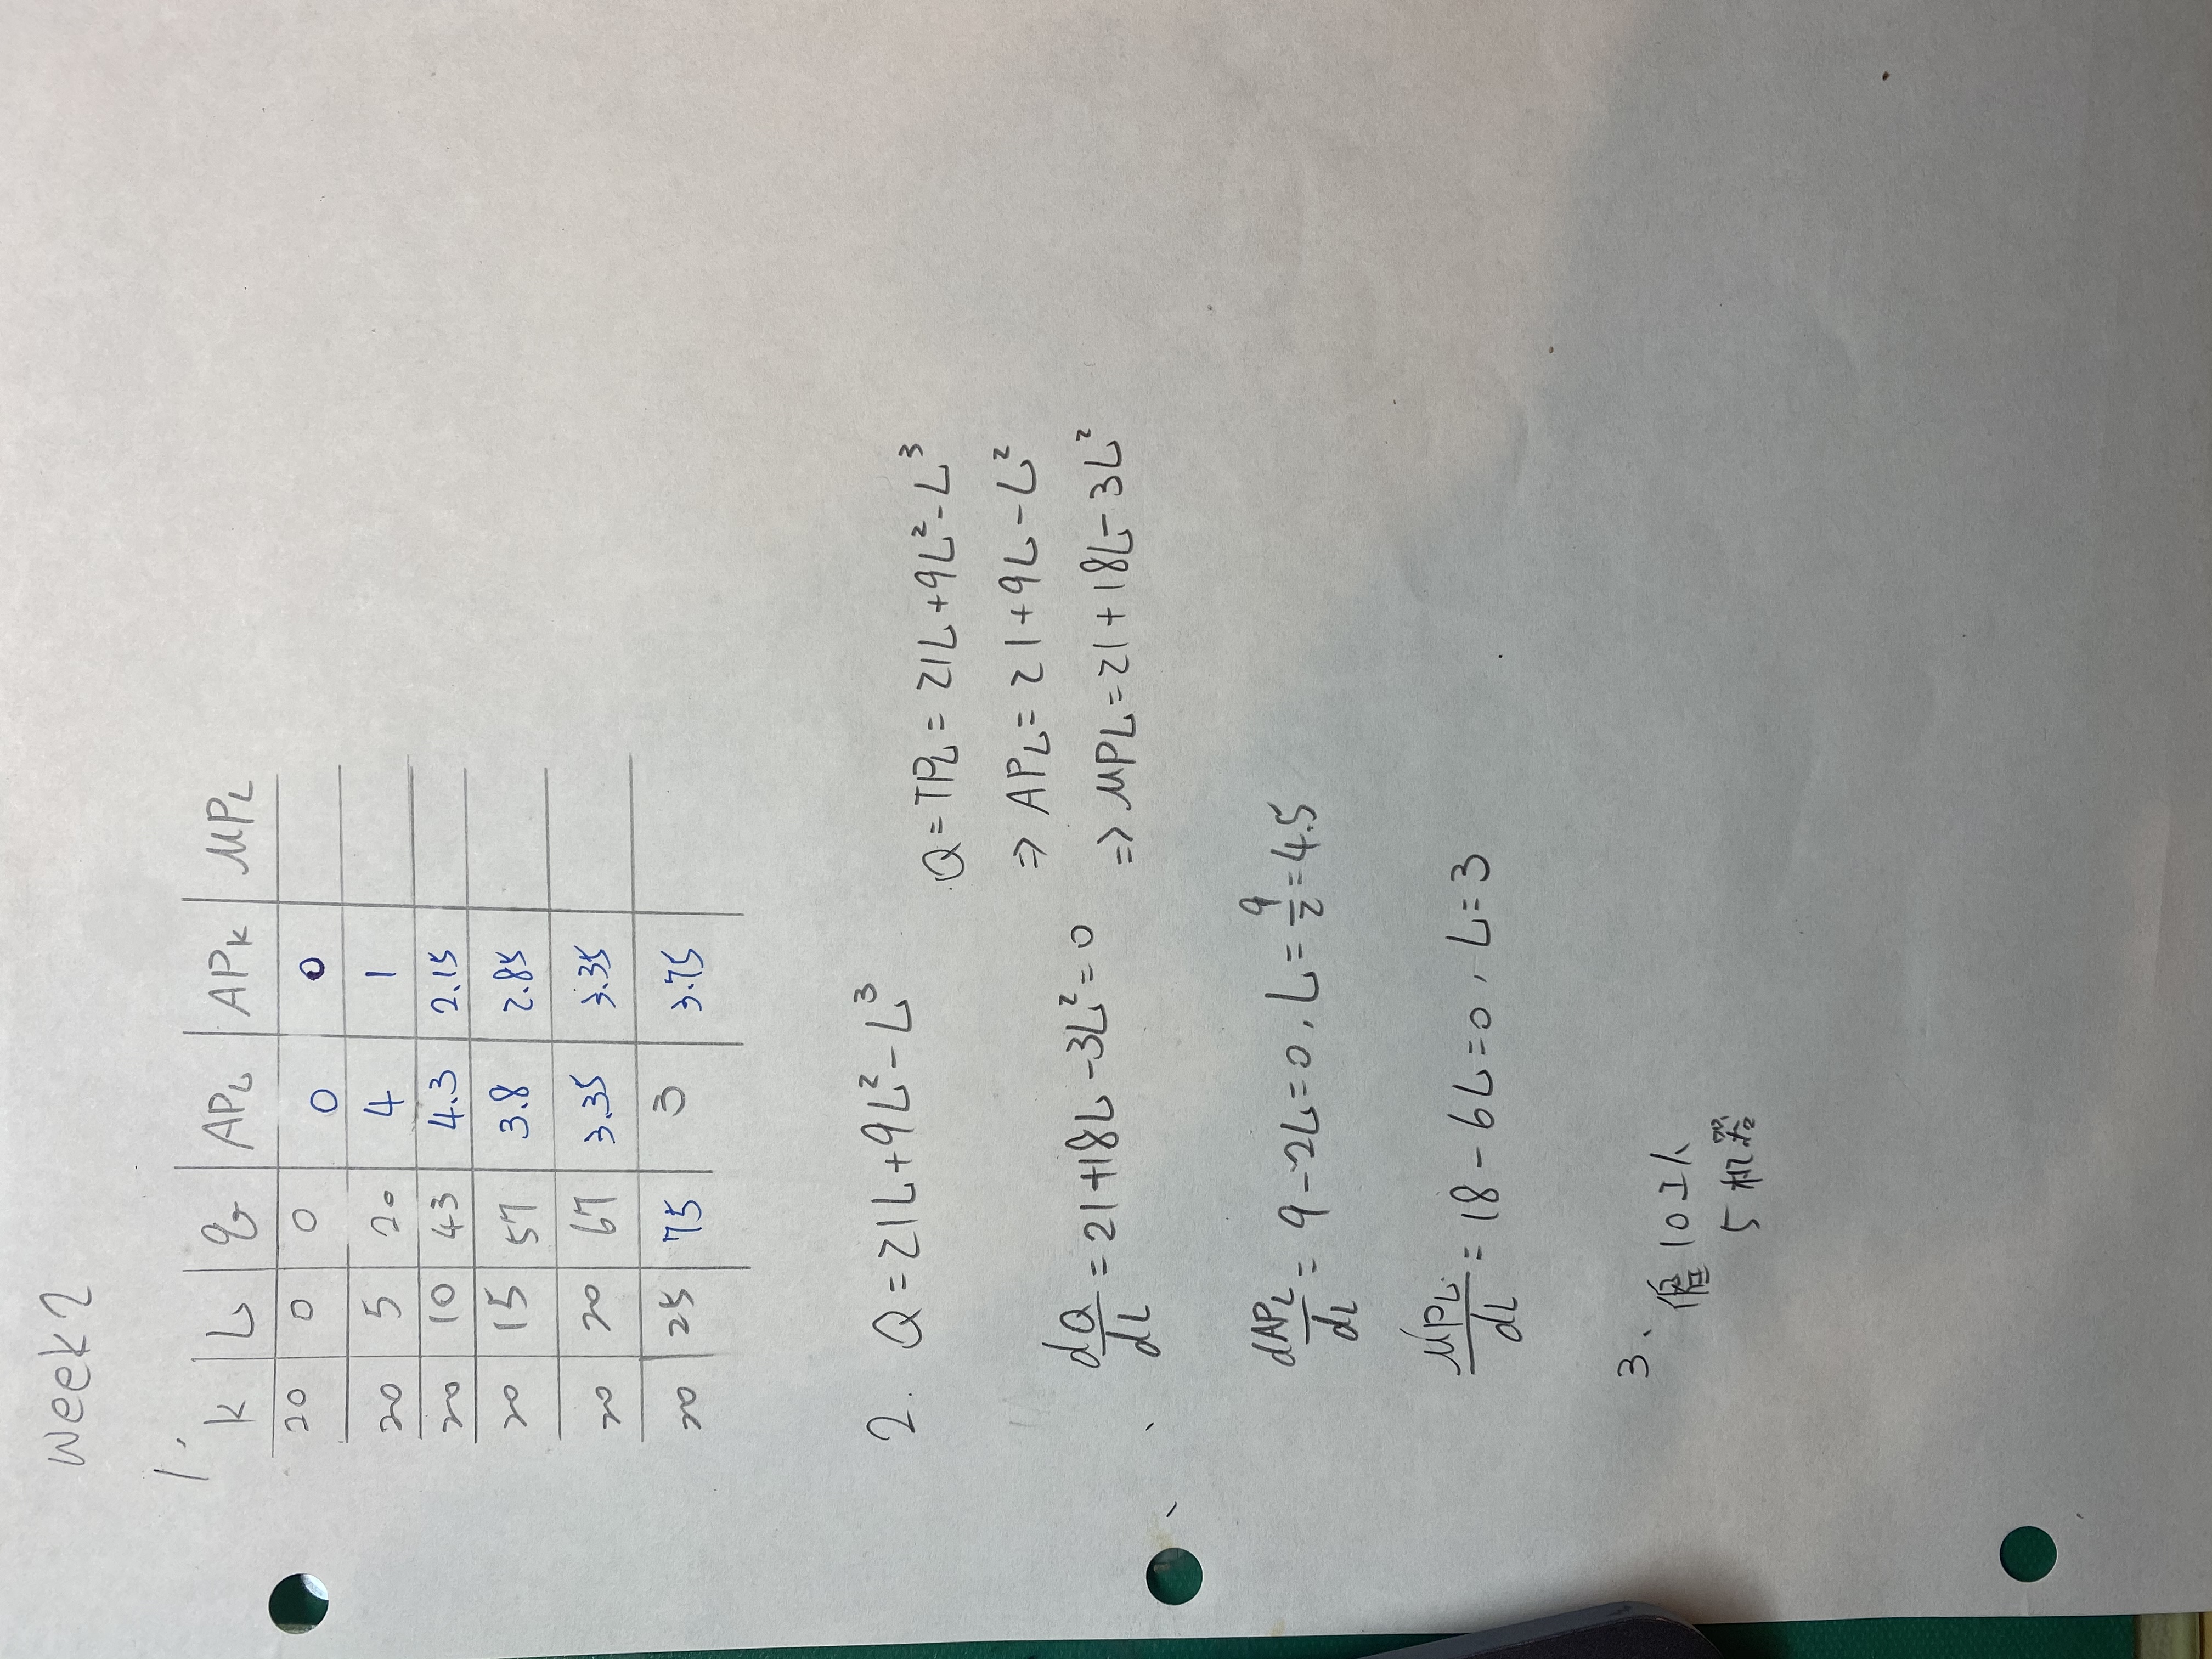 week 2
1.
K L q APL APK MPL
20 0 0 0 0
20 5 20 4 1
20 10 43 4.3 2.15
20 15 57 3.8 2.85
20 20 67 3.35 3.35
20 25 75 3 3.75
2. Q = 21L + 9L² - L³
Q = TPL = 21L + 9L² - L³
⇒ APL = 21 + 9L - L²
dQ/dL = 21 + 18L - 3L² = 0
⇒ MPL = 21 + 18L - 3L²
dAPL/dL = 9 - 2L = 0, L = 9/2 = 4.5
MPL/dL = 18 - 6L = 0, L = 3
3、
10工人
5 机器